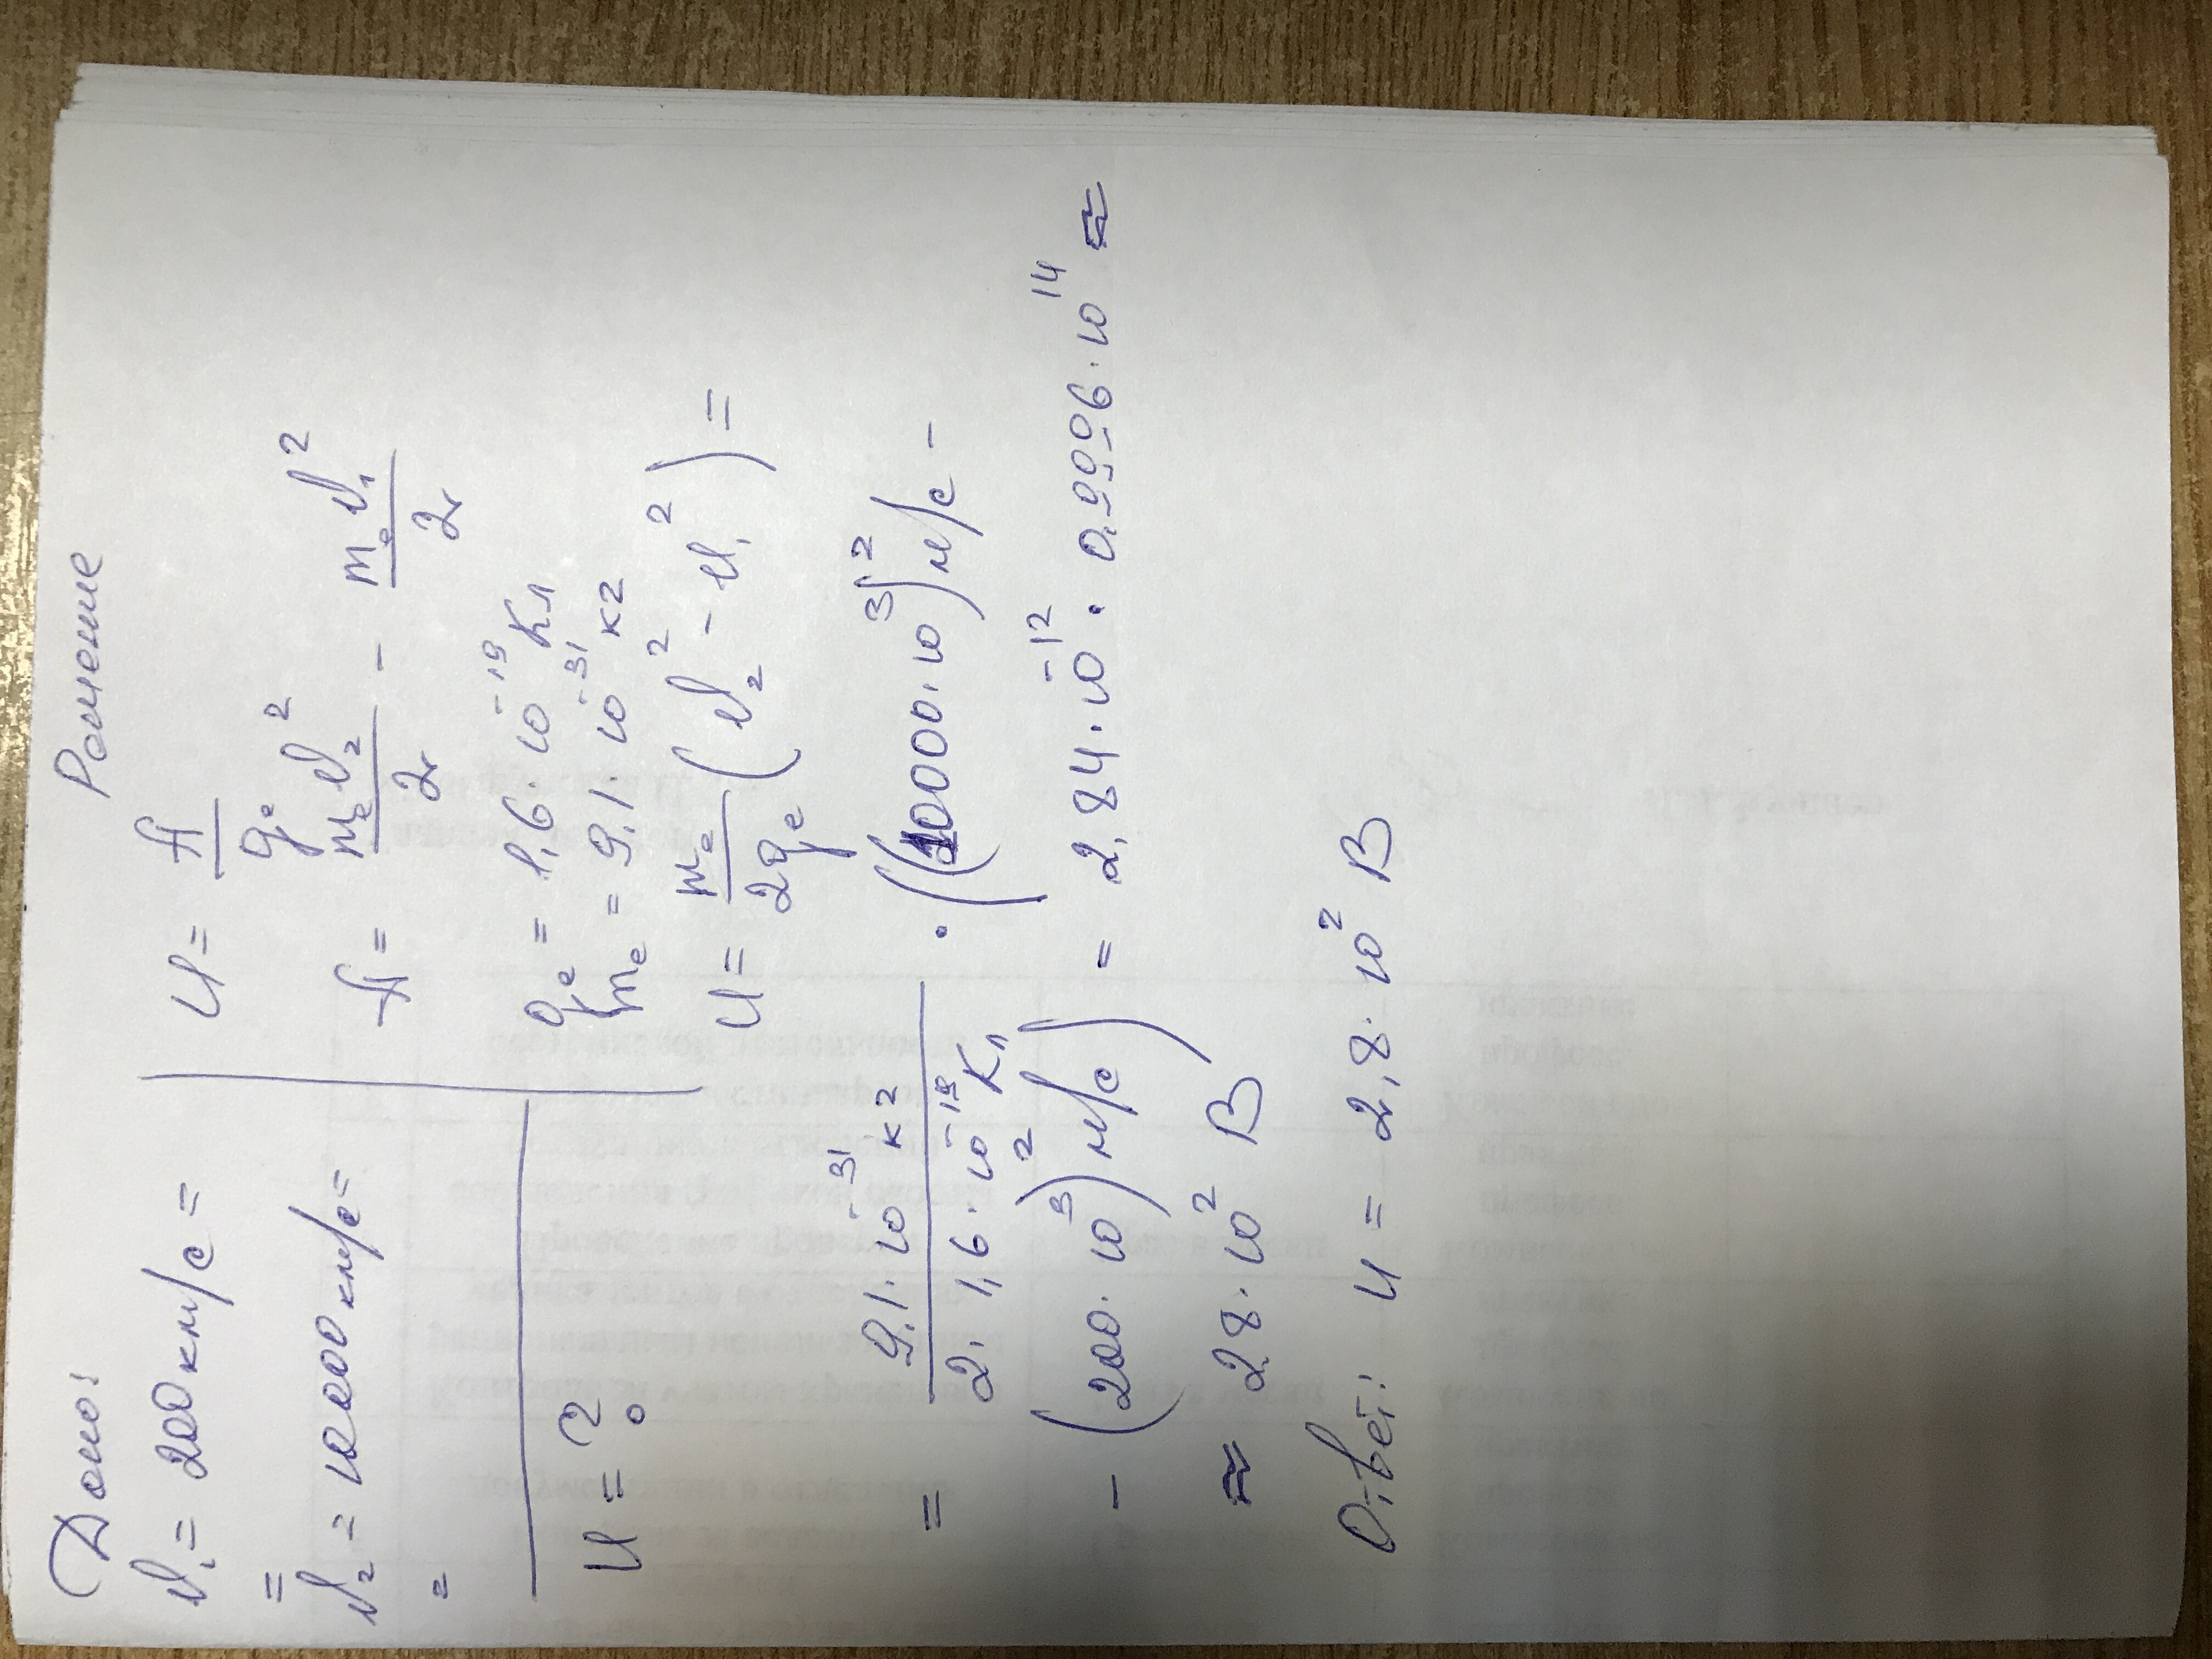 Дано: Решение
υ₁ = 200 км/с =
=
υ₂ = 10000 км/с =
=
U = ?
U = A/qe
A = meυ₂²/2 - meυ₁²/2
qe = 1,6 · 10⁻¹⁹ Кл
me = 9,1 10⁻³¹ кг
U = me/2qe (υ₂² - υ₁²) =
= 9,1 · 10⁻³¹ кг / 2 · 1,6 · 10⁻¹⁹ Кл · ((10000 · 10³)² м/с -
- (200 · 10³)² м/с) = 2,84 · 10⁻¹² · 0,9996 · 10¹⁴ ≈
≈ 2,8 · 10² В
Ответ: U = 2,8 · 10² В